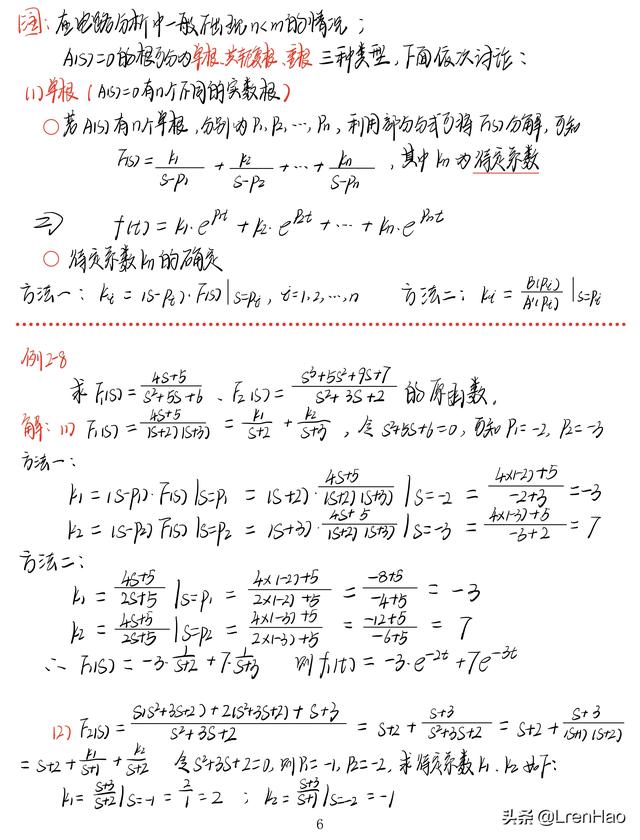 注: 在电路分析中一般不出现n<m的情况;
A(s)=0的根可分为单根、共轭复根、重根 三种类型, 下面依次讨论:
(1) 单根 (A(s)=0有n个不同的实数根)
○ 若A(s)有n个单根, 分别为P₁, P₂, ..., Pₙ, 利用部分分式可将F(s)分解, 可知
F(s) = k₁/(s-p₁) + k₂/(s-p₂) + ... + kₙ/(s-pₙ), 其中kₙ为待定系数
=> f(t) = k₁·e^{p₁t} + k₂·e^{p₂t} + ... + kₙ·e^{pₙt}
○ 待定系数kₙ的确定
方法一: kᵢ = (s-pᵢ)·F(s)|s=pᵢ, i=1,2,...,n 方法二: kᵢ = B(pᵢ)/A'(pᵢ) |s=pᵢ
例2-8
求F₁(s) = (4s+5)/(s²+5s+6)、F₂(s) = (s³+5s²+9s+7)/(s²+3s+2) 的原函数.
解: (1) F₁(s) = (4s+5)/((s+2)(s+3)) = k₁/(s+2) + k₂/(s+3), 令s²+5s+6=0, 可知P₁=-2, P₂=-3
方法一:
k₁ = (s-p₁)·F(s)|s=p₁ = (s+2)·(4s+5)/((s+2)(s+3)) |s=-2 = (4×(-2)+5)/(-2+3) = -3
k₂ = (s-p₂) F(s)|s=p₂ = (s+3)·(4s+5)/((s+2)(s+3)) |s=-3 = (4×(-3)+5)/(-3+2) = 7
方法二:
k₁ = (4s+5)/(2s+5) |s=p₁ = (4×(-2)+5)/(2×(-2)+5) = (-8+5)/(-4+5) = -3
k₂ = (4s+5)/(2s+5) |s=p₂ = (4×(-3)+5)/(2×(-3)+5) = (-12+5)/(-6+5) = 7
∴ F₁(s) = -3·1/(s+2) + 7·1/(s+3) 则f₁(t) = -3·e^{-2t} + 7e^{-3t}
(2) F₂(s) = (s(s²+3s+2)+2(s²+3s+2)+s+3)/(s²+3s+2) = s+2 + (s+3)/(s²+3s+2) = s+2 + (s+3)/((s+1)(s+2))
= s+2 + k₁/(s+1) + k₂/(s+2) 令s²+3s+2=0, 则P₁=-1, P₂=-2, 求待定系数k₁、k₂如下:
k₁ = (s+3)/(s+2) |s=-1 = 2/1 = 2 ; k₂ = (s+3)/(s+1) |s=-2 = -1
6
头条 @LrenHao